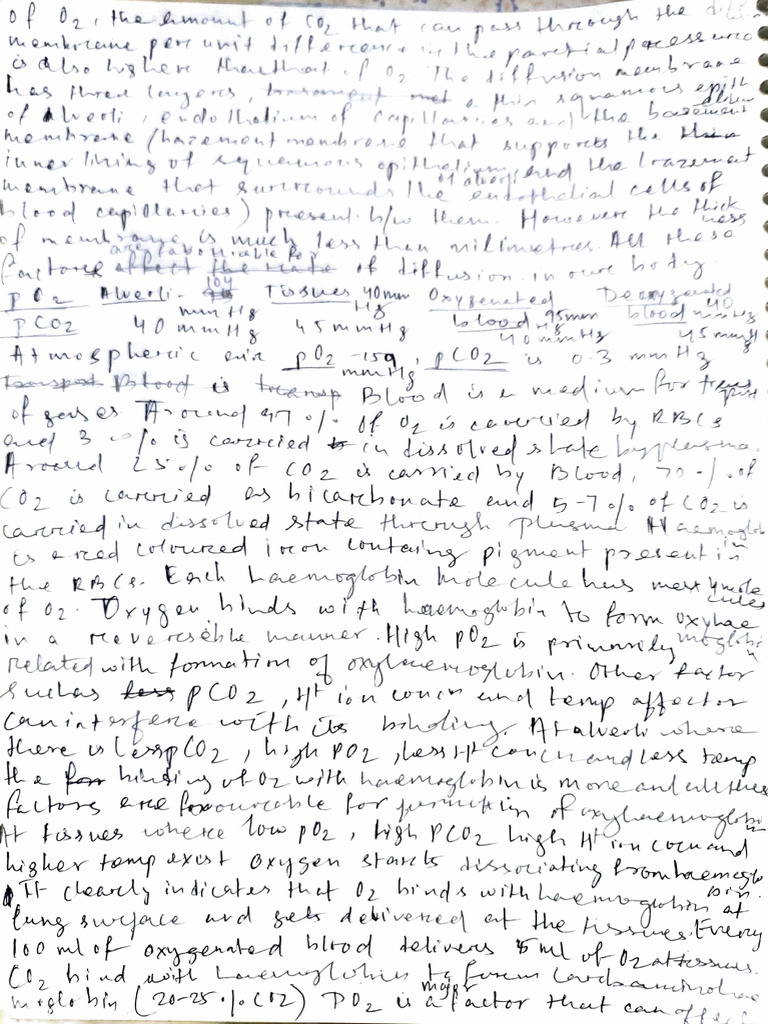 of O2, the amount of CO2 that can pass through the
membrane per unit difference in the partial pressure
is also higher than that of O2 The diffusion membrane
has three layers, a thin squamous epith
elium
of Alveoli, endothelium of capillaries and the basement
membrane (basement membrane that supports the thin
inner lining of squamous epithelium of alveoli and the bazement
membrane that surrounds the endothelial cells of
blood capillaries) present b/w them. However the thick
ness
of membrane is much less than milimetres. All these
factors are favourable for of diffusion in our body.
pO2 Alveoli- 104 mm Hg Tissues 40 mm Hg Oxygenated blood 95mm Hg Deoxygenated blood 40 mm Hg
pCO2 40 mmHg 45 mmHg 40 mmHg 45 mmHg
Atmospheric air pO2 -159 mmHg, pCO2 is 0.3 mmHg
Transport Blood is Blood is a medium for transport
of gases Around 97 % of O2 is carried by RBCs
and 3 % is carried in dissolved state by plasma.
Around 25 % of CO2 is carried by Blood, 70 % of
CO2 is carried as bicarbonate and 5-7 % of CO2 is
carried in dissolved state through plasma Haemoglob
in
is a red coloured iron containg pigment present in
the RBCs. Each haemoglobin molecule has max 4 mole
cules
of O2. Oxygen binds with haemoglobin to form oxyhae
moglobin
in a reversible manner. High pO2 is primarily
related with formation of oxyhaemoglobin. Other factor
such as less pCO2, H+ ion concn and temp affector
can interfere with its binding. At alveoli where
there is less pCO2, high PO2, less H+ concn and less temp
the for binding of O2 with haemoglobin is more and all these
factors are favourable for formation of oxyhaemoglobin
At tissues where low pO2, high PCO2 high H+ ion concn and
higher temp exist oxygen starts dissociating from haemoglo
bin.
It clearly indicates that O2 binds with haemoglobin at
lung surface and gets delivered at the tissues. Every
100 ml of oxygenated blood delivers 5 ml of O2 at tissues.
CO2 bind with haemoglobin to form carbaminohae
moglobin (20-25 % CO2) PO2 is a major factor that can affect